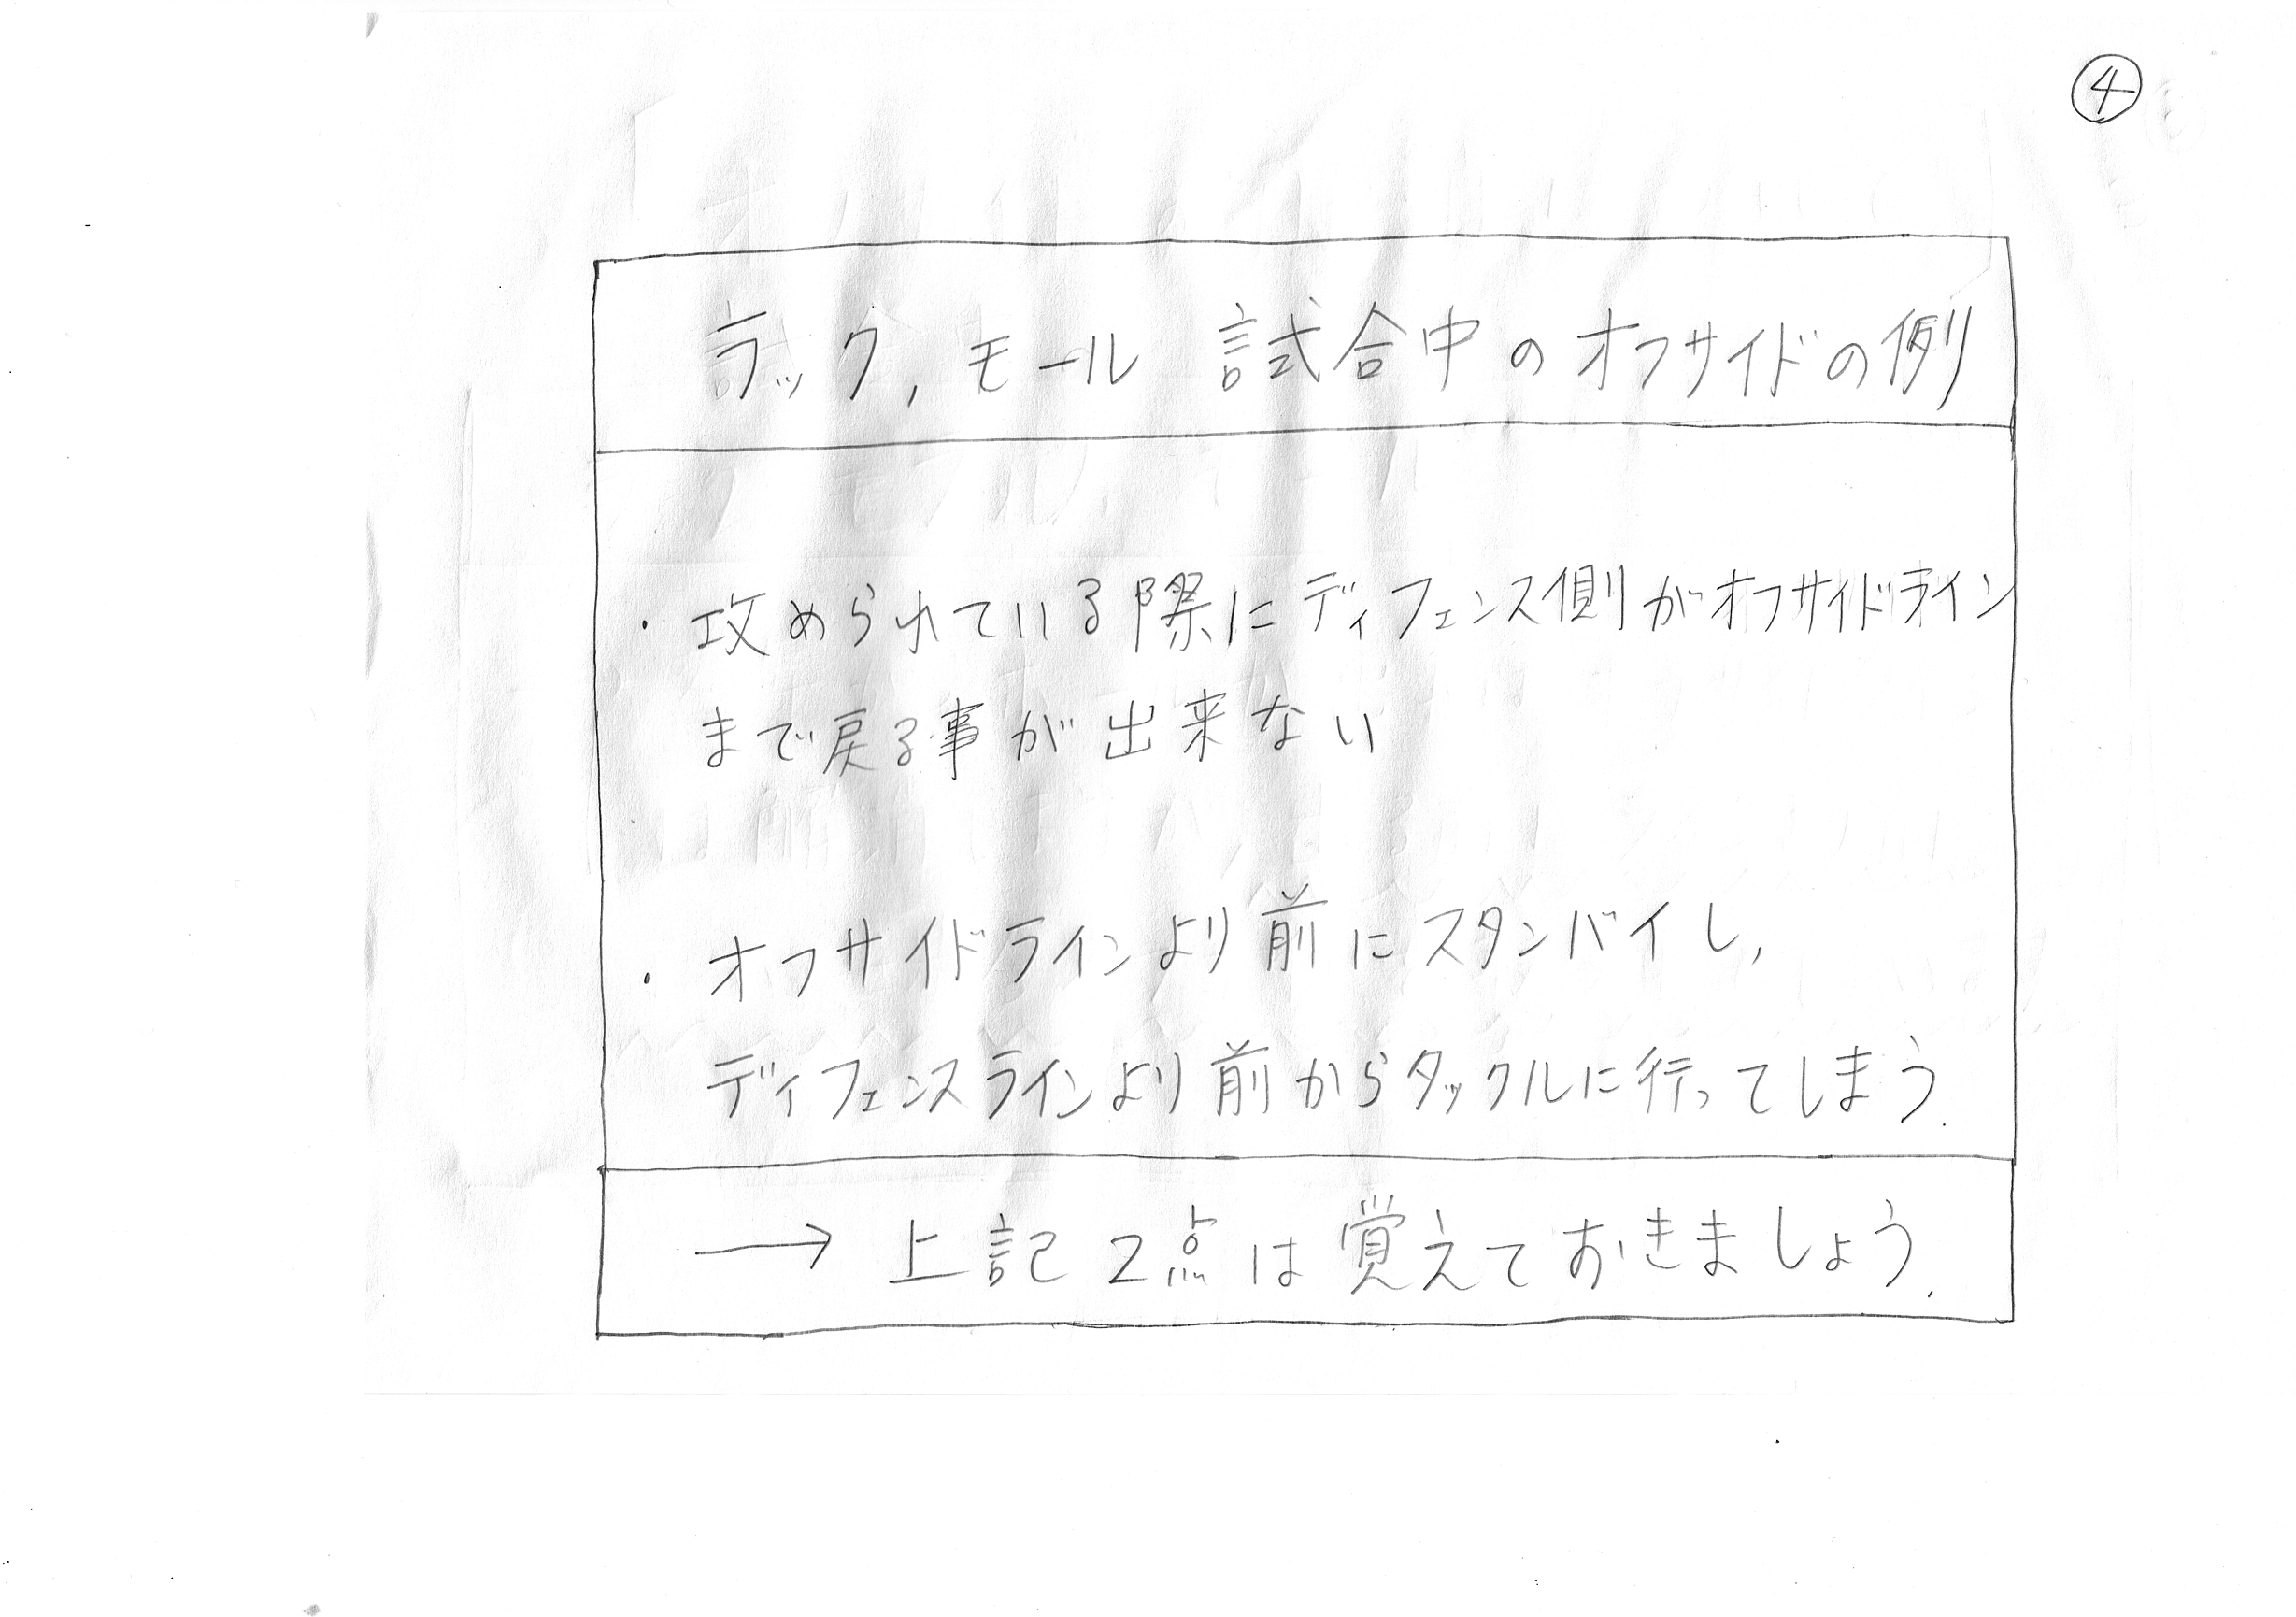 ④
ラック, モール 試合中のオフサイドの例
・攻められている際にディフェンス側がオフサイドライン
まで戻る事が出来ない
・オフサイドラインより前にスタンバイし,
ディフェンスラインより前からタックルに行ってしまう.
→ 上記2点は覚えておきましょう.